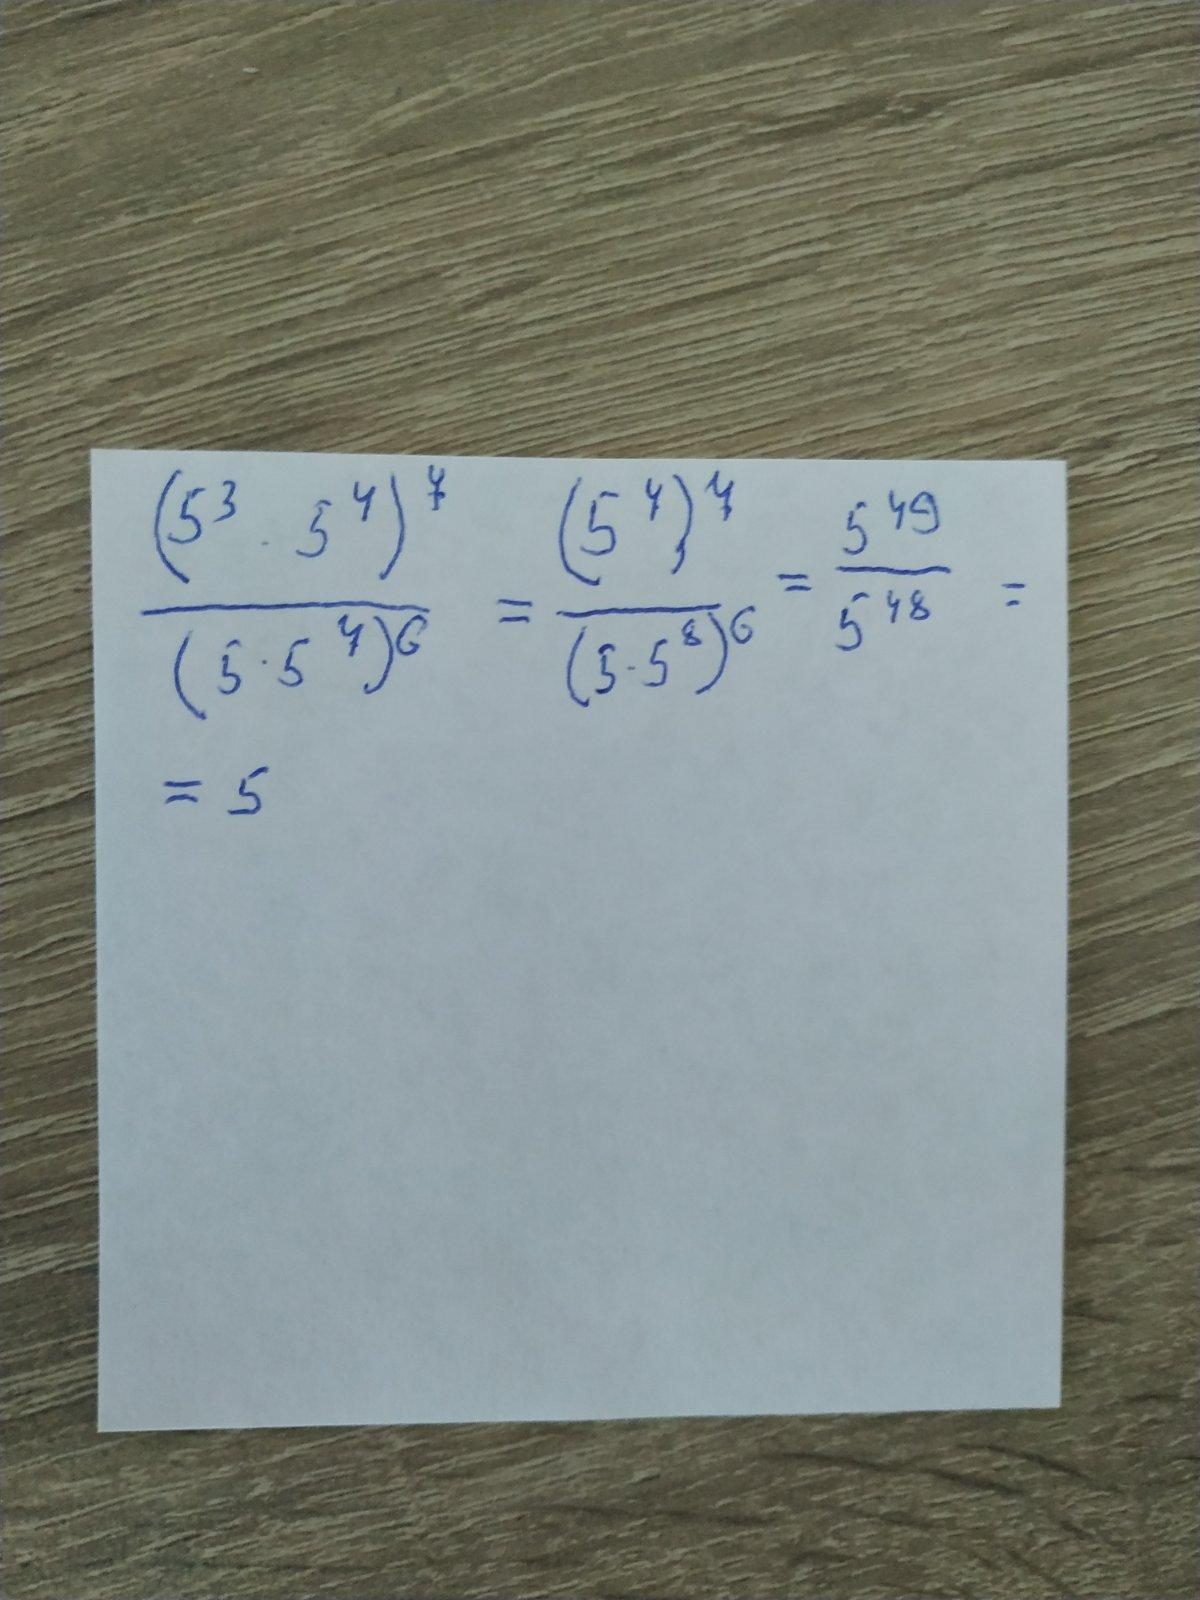 (5³ · 5⁴)⁷ / (5 · 5⁷)⁶ = (5⁷)⁷ / (5 · 5⁸)⁶ = 5⁴⁹ / 5⁴⁸ =
= 5